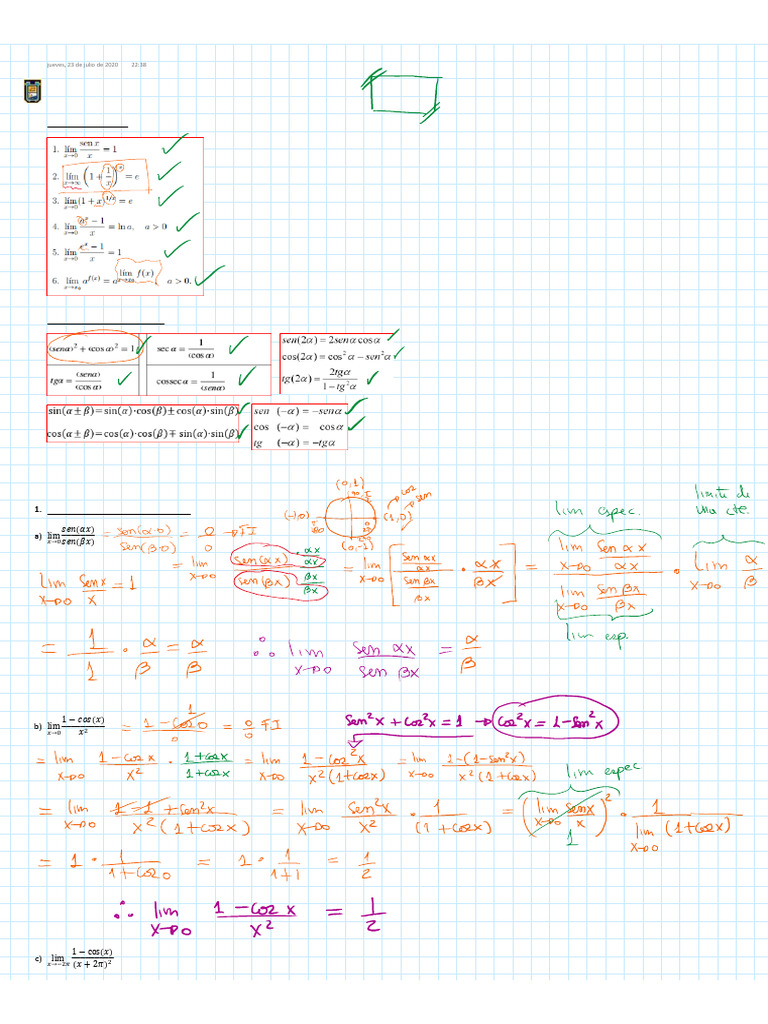 jueves, 23 de julio de 2020 22:18
1. lím x→0 sen x / x = 1
2. lím x→∞ (1 + 1/x)^x = e
3. lím x→0 (1 + x)^(1/x) = e
4. lím x→0 (a^x − 1)/x = ln a, a > 0
5. lím x→0 (e^x − 1)/x = 1
6. lím x→x₀ a^f(x) = a^(lím x→x₀ f(x)) a > 0.
(senα)² + (cosα)² = 1 sec α = 1/(cos α) sen(2α) = 2senα cosα
cos(2α) = cos²α − sen²α
tgα = (senα)/(cosα) cossec α = 1/(senα) tg(2α) = 2tgα/(1 − tg²α)
sin(α ± β) = sin(α)·cos(β) ± cos(α)·sin(β) sen (−α) = −senα
cos(α ± β) = cos(α)·cos(β) ∓ sin(α)·sin(β) cos (−α) = cosα
tg (−α) = −tgα
(0,1)
cos
sen
(-1,0) (1,0)
(0,-1)
1.
a) lim x→0 sen(αx)/sen(βx) = sen(α·0)/sen(β·0) = 0/0 → FI
lim espec. limite de una cte.
lim x→0 senx/x = 1
= lim x→0 sen(αx)/sen(βx) · αx/αx · βx/βx = lim x→0 [ (sen αx/αx)/(sen βx/βx) · αx/βx ] = (lim x→0 sen αx/αx)/(lim x→0 sen βx/βx) · lim x→0 α/β
lim esp.
= 1/1 · α/β = α/β ∴ lim x→0 sen αx/sen βx = α/β
b) lim x→0 (1 − cos(x))/x² = (1 − cos 0)/0 = 0/0 FI
1
sen²x + cos²x = 1 → cos²x = 1 − sen²x
= lim x→0 (1 − cos x)/x² · (1 + cos x)/(1 + cos x) = lim x→0 (1 − cos²x)/(x²(1 + cos x)) = lim x→0 (1 − (1 − sen²x))/(x²(1 + cos x))
lim espec
= lim x→0 (1 − 1 + sen²x)/(x²(1 + cos x)) = lim x→0 sen²x/x² · 1/(1 + cos x) = (lim x→0 senx/x)² · 1/(lim x→0 (1 + cos x))
1
= 1 · 1/(1 + cos 0) = 1 · 1/(1+1) = 1/2
∴ lim x→0 (1 − cos x)/x² = 1/2
c) lim x→−2π (1 − cos(x))/(x + 2π)²